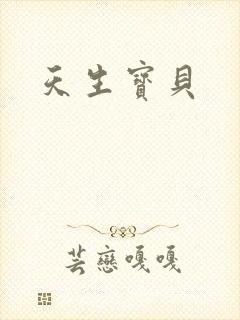 天生寶貝
芸戀嘎嘎